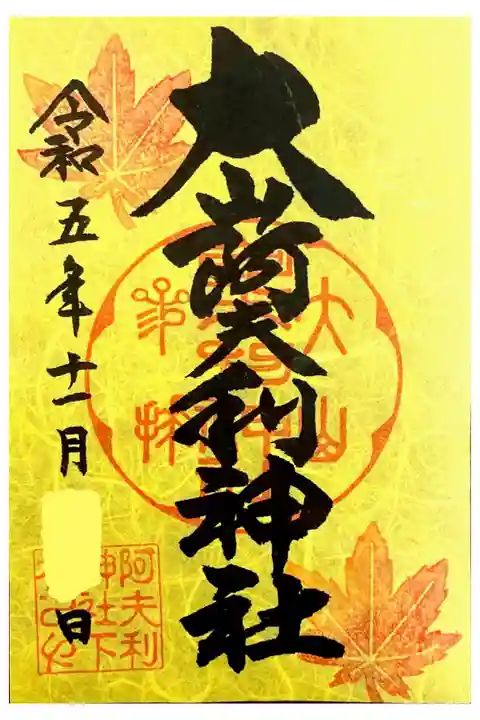 大山阿夫利神社
令和五年十一月 日
大山
阿夫利
神社下